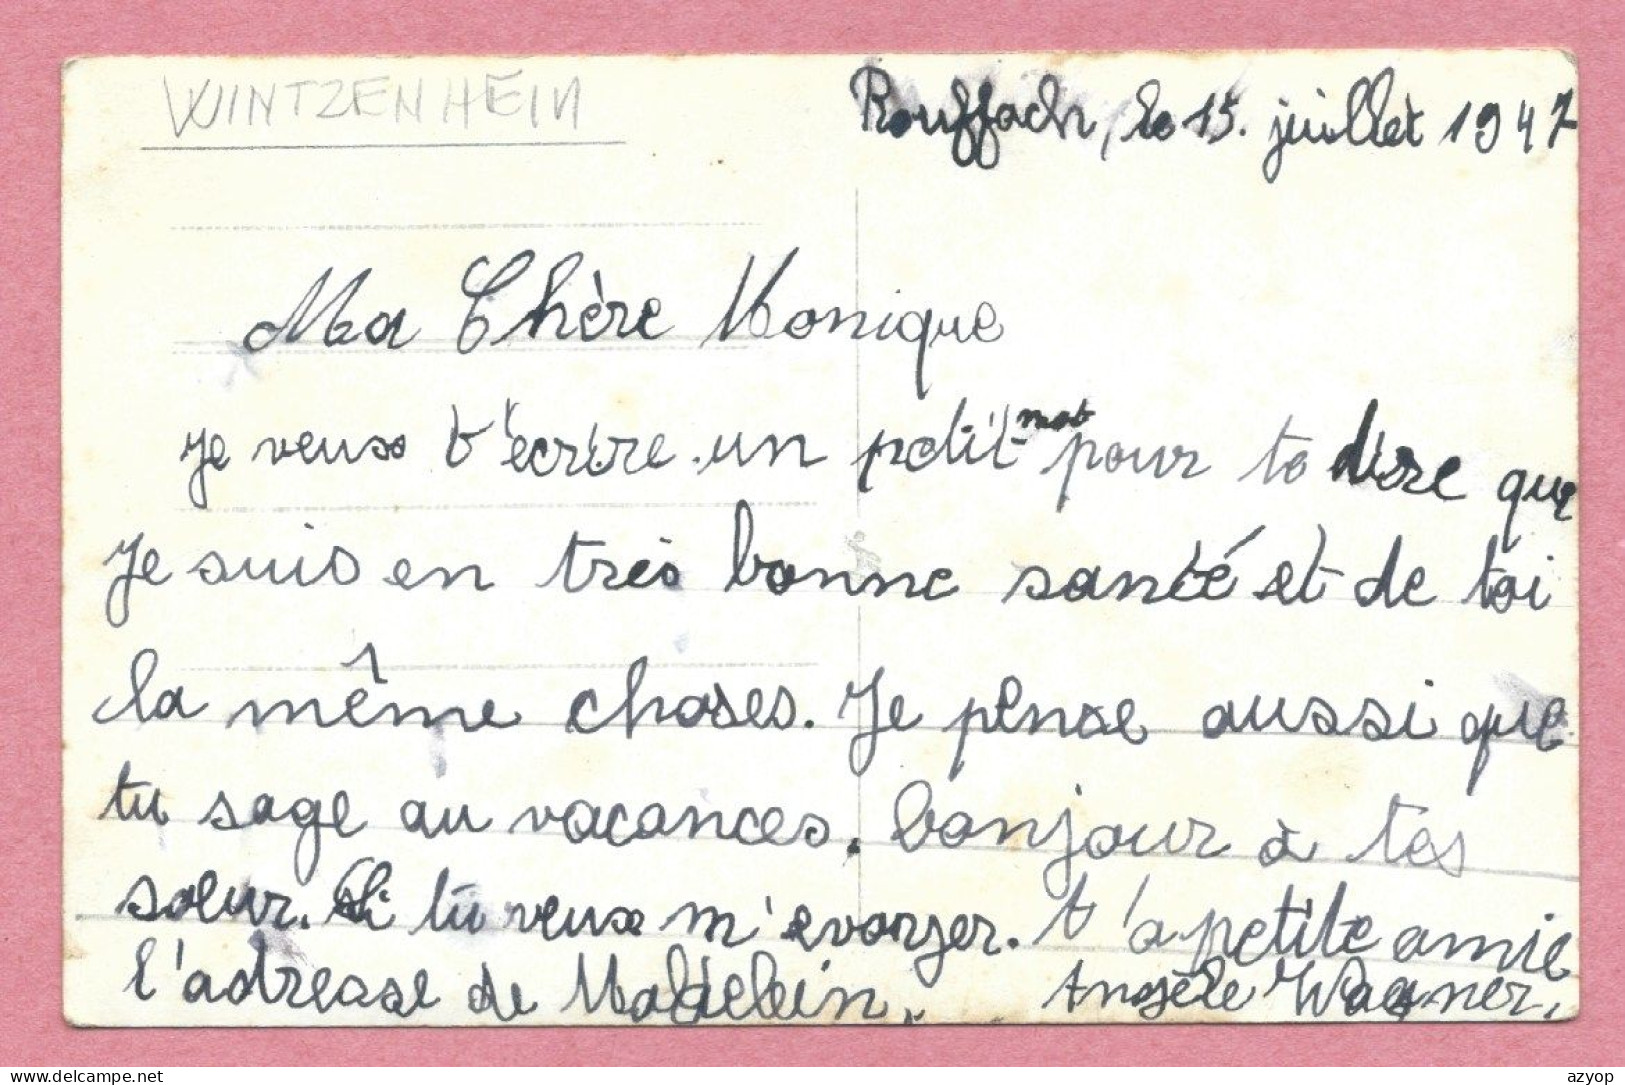 WINTZENHEIM
Rouffach, le 15. juillet 1947
Ma Chère Monique
Je veux t'écrire un petit mot pour te dire que
Je suis en très bonne santé et de toi
la même choses. Je pense aussi que
tu sage au vacances. bonjour à tes
soeur. Si tu veux m'evoyer. t'a petite amie
l'adresse de Madelein. Angèle Wagner.
azyop